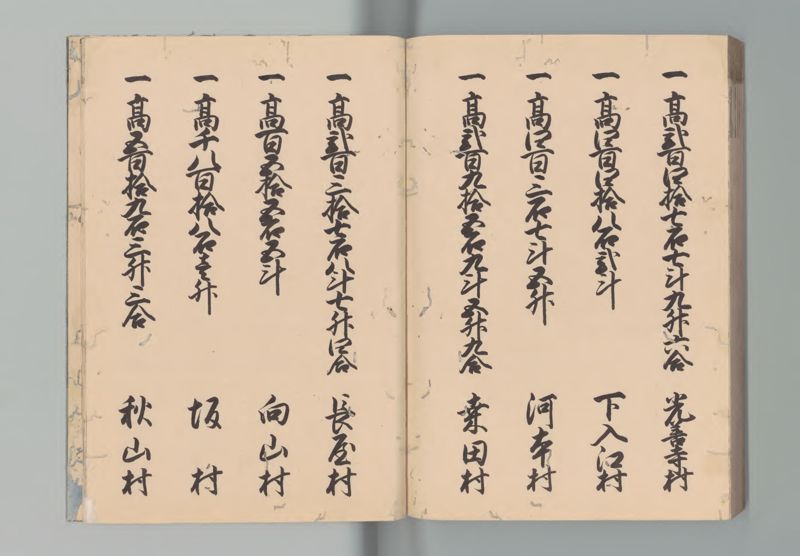 一 高弐百四拾七石七斗九升六合 光善寺村
一 高四百四拾八石弐斗 下入江村
一 高四百三石七斗五升 河本村
一 高弐百九拾五石九斗五升九合 桒田村
一 高弐百三拾七石八斗七升四合 長屋村
一 高百五拾五石五斗 向山村
一 高千八百拾八石壱升 坂村
一 高五百拾九石三升三合 秋山村